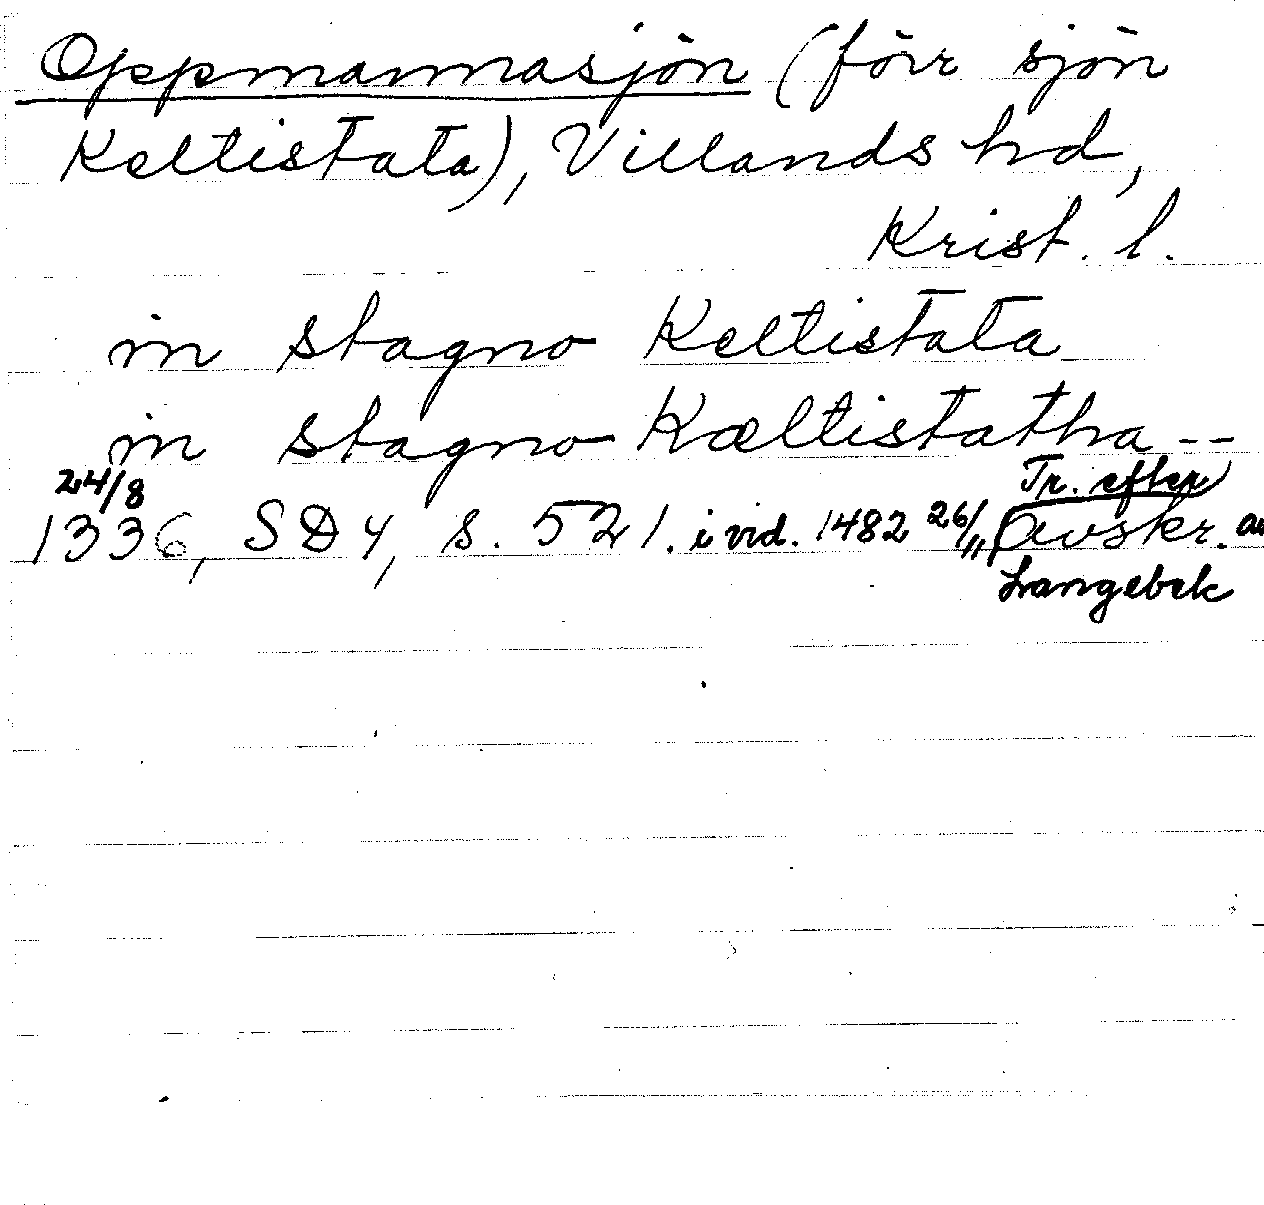 Oppmannasjön (förr sjön
Keltistata), Villands hd,
Krist. l.
in stagno Keltistata
in stagno Kæltistatha --
24/8
1336, SD 4, s. 521. i vid. 1482 26/11 Tr. efter
avskr. av
Langebek